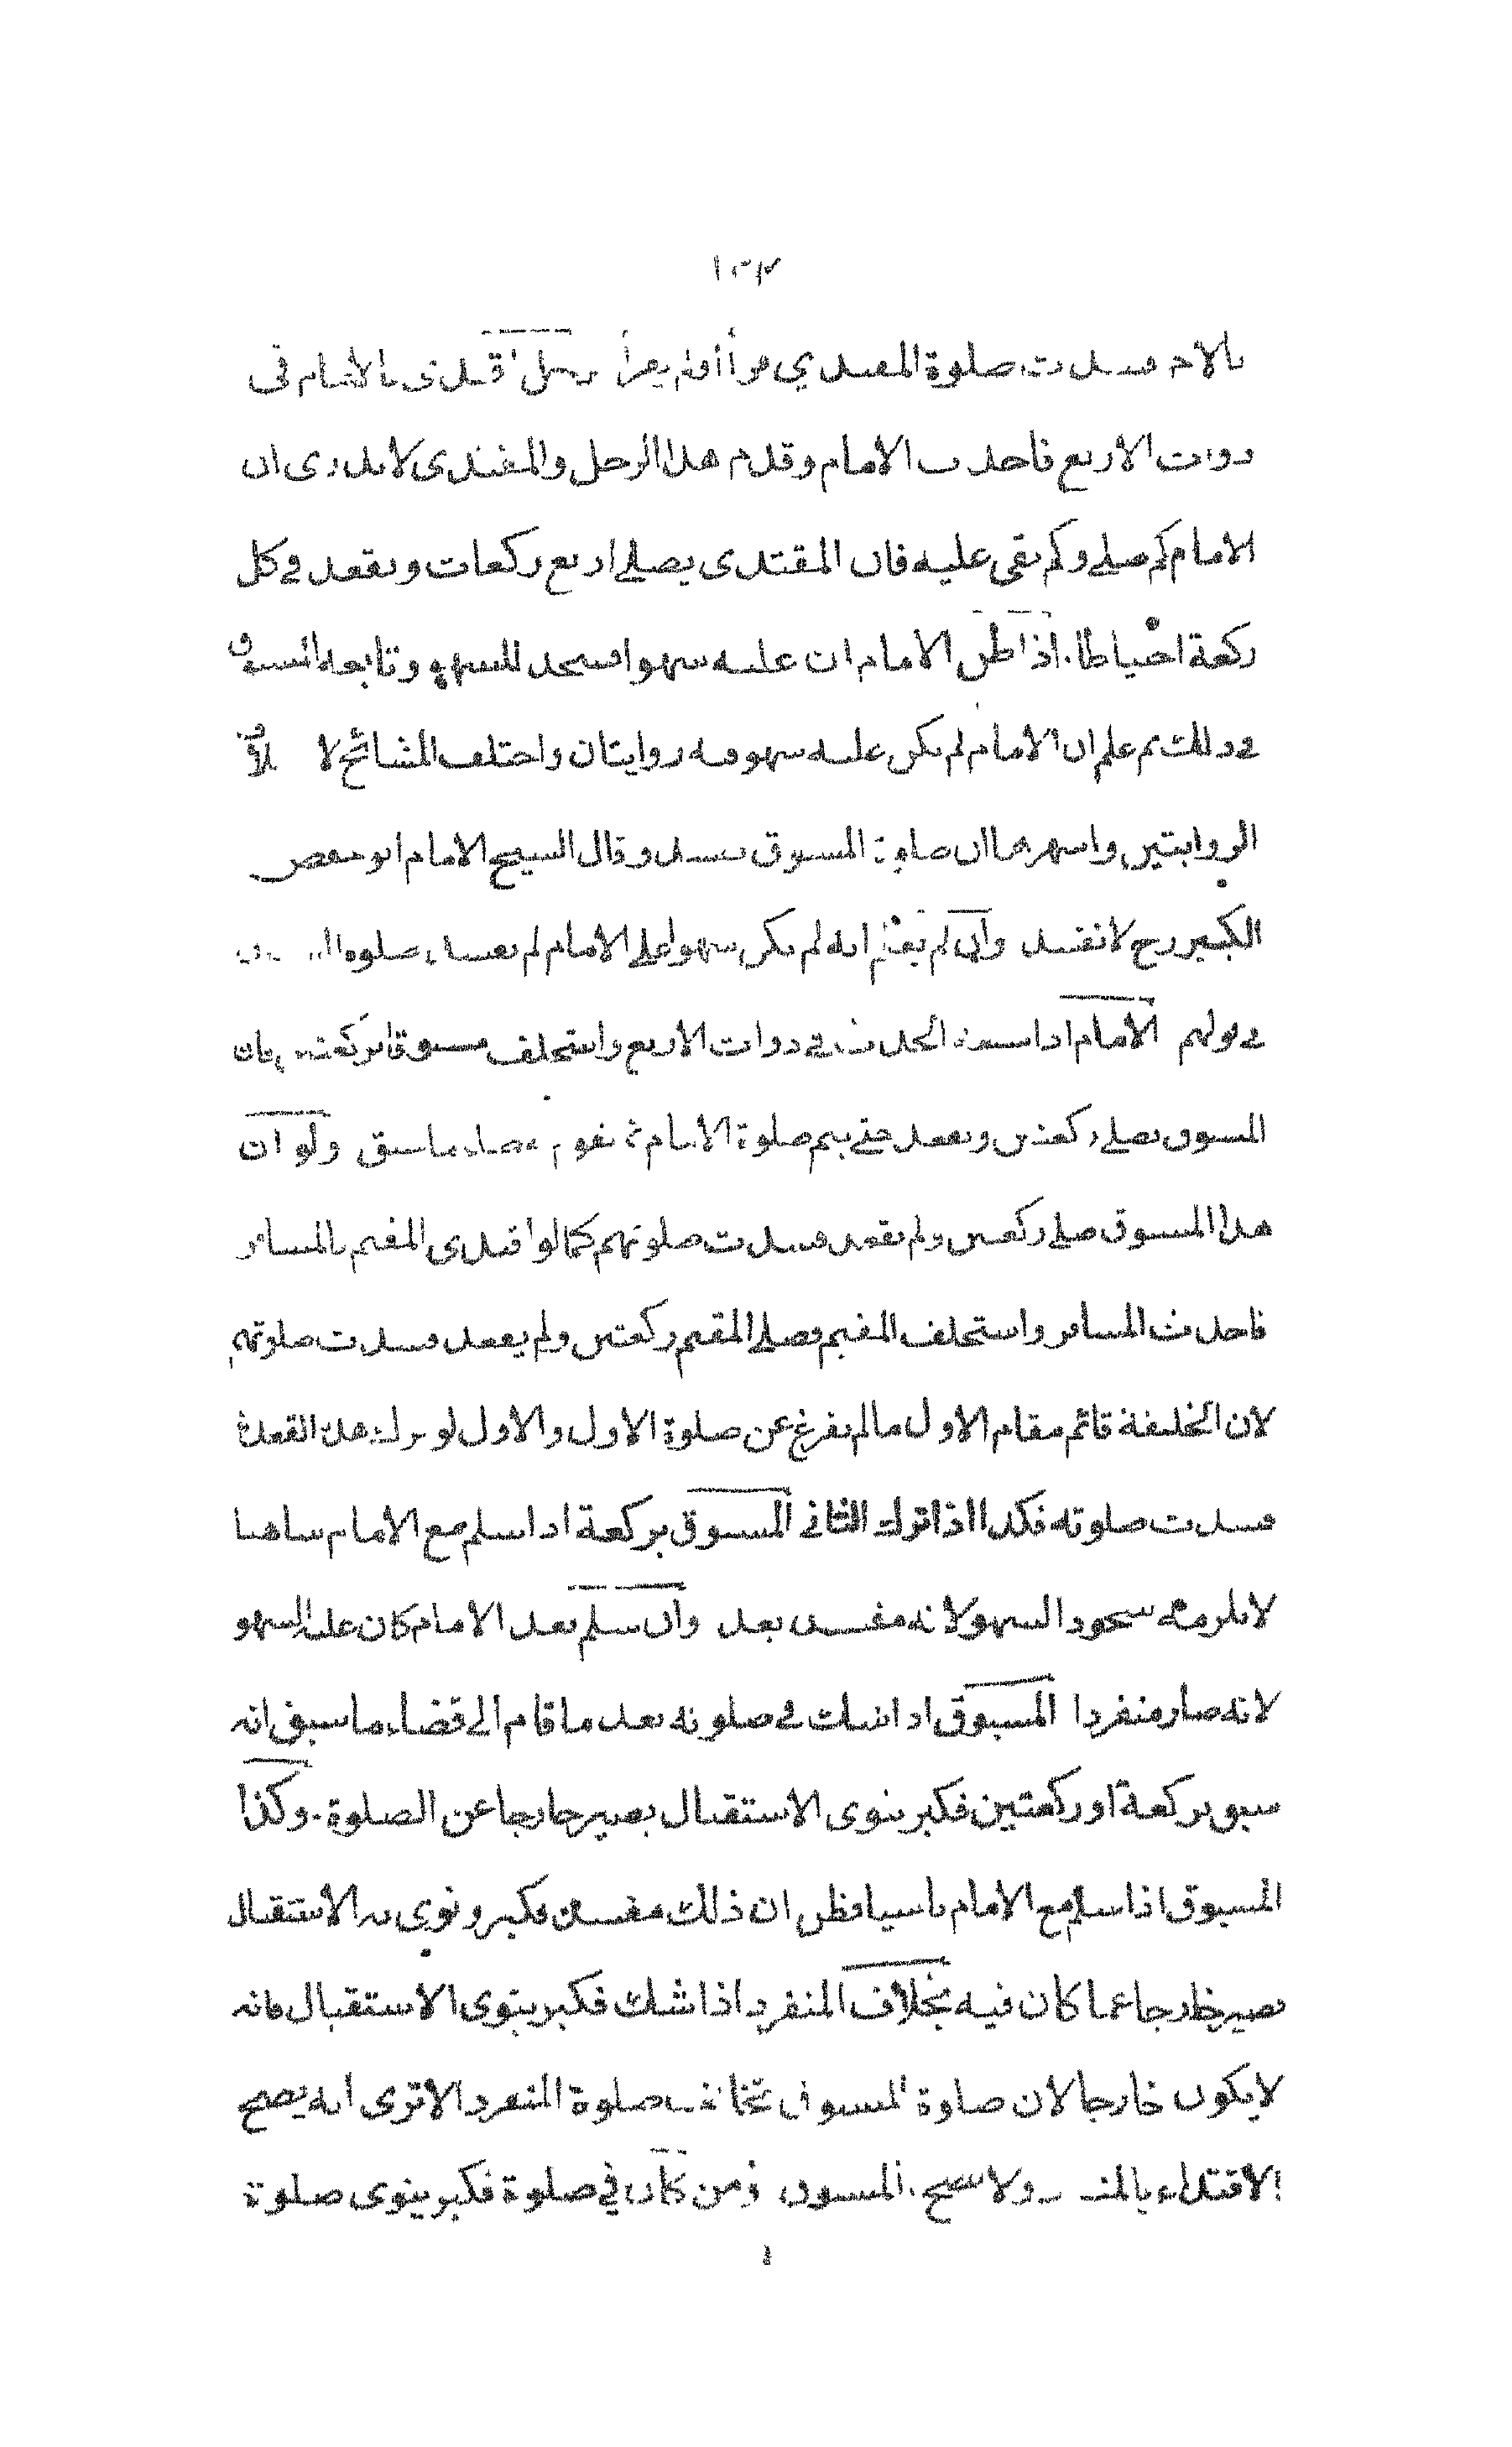 ١٠٣
فسدت صلوة المقتدي قرأ اولم يقرأ رجل اقتدى بالامام فى
ذوات الاربع فاحدث الامام وقدم هذا الرجل والمقتدى لا يدرى ان
الامام كم صلى وكم بقى عليه فان المقتدى يصلى اربع ركعات ويقعد فى كل
ركعة احتياطا. اذا ظن الامام ان عليه سهوا فسجد للسهو وتابعه المسبوق
فى ذلك ثم علم ان الامام لم يكن عليه سهو فيه روايتان واختلف المشائخ لاختلاف
الروايتين واشهرهما ان صلوة المسبوق تفسد وقال الشيخ الامام ابو حفص
الكبير رح لا تفسد وان لم يعلم انه لم يكن سهوا على الامام لم تفسد صلوة
فى قولهم الامام اذا سبقه الحدث فى ذوات الاربع واستخلف مسبوقا بركعتين فان
المسبوق يصلى ركعتين ويقعد حتى يتم صلوة الامام ثم يقوم لقضاء ما سبق ولو ان
هذا المسبوق صلى ركعتين ولم يقعد فسدت صلوتهم كما لو اقتدى المقيم بالمسافر
فاحدث المسافر واستخلف المقيم فصلى المقيم ركعتين ولم يقعد فسدت صلوتهم
لان الخليفة قائم مقام الاول مالم يفرغ عن صلوة الاول والاول لو ترك هذه القعدة
فسدت صلوته فكذا اذا ترك الثانى المسبوق بركعة اذا سلم مع الامام ساهيا
لا يلزمه سجود السهو لانه مقتد بعد وان سلم بعد الامام كان عليه السهو
لانه صار منفردا المسبوق اذا شك فى صلوته بعد ما قام الى قضاء ما سبق انه
سبق بركعة او ركعتين فكبر ينوى الاستقبال يصير خارجا عن الصلوة. وكذا
المسبوق اذا سلم مع الامام ناسيا فظن ان ذلك مفسد فكبر ونوى به الاستقبال
يصير خارجا عما كان فيه بخلاف المنفرد اذا شك فكبر ينوى الاستقبال فانه
لا يكون خارجا لان صلوة المسبوق تخالف صلوة المنفرد الا ترى انه يصح
الاقتداء بالمنفرد ولا يصح بالمسبوق ومن كان فى صلوة فكبر ينوى صلوة